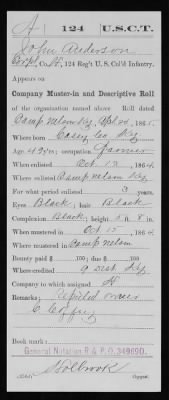 A 124 U.S.C.T.
John Anderson
Corpl, Co. H, 124 Reg't U. S. Col'd Infantry.
Appears on
Company Muster-in and Descriptive Roll
of the organization named above. Roll dated
Camp Nelson Ky, Apl 24, 186
Where born Casey Co Ky
Age 43 y'rs; occupation Farmer
When enlisted Oct 12, 1864
Where enlisted Camp Nelson Ky.
For what period enlisted 3 years.
Eyes Black; hair Black
Complexion Black; height 5 ft. 8 in.
When mustered in Oct 15, 1864
Where mustered in Camp Nelson
Bounty paid $ 100; due $ 100
Where credited 9 Dist Ky.
Company to which assigned H
Remarks: owner
C.
Book mark:
General Notation R & P O. 349690.
Holbrook
Copyist.